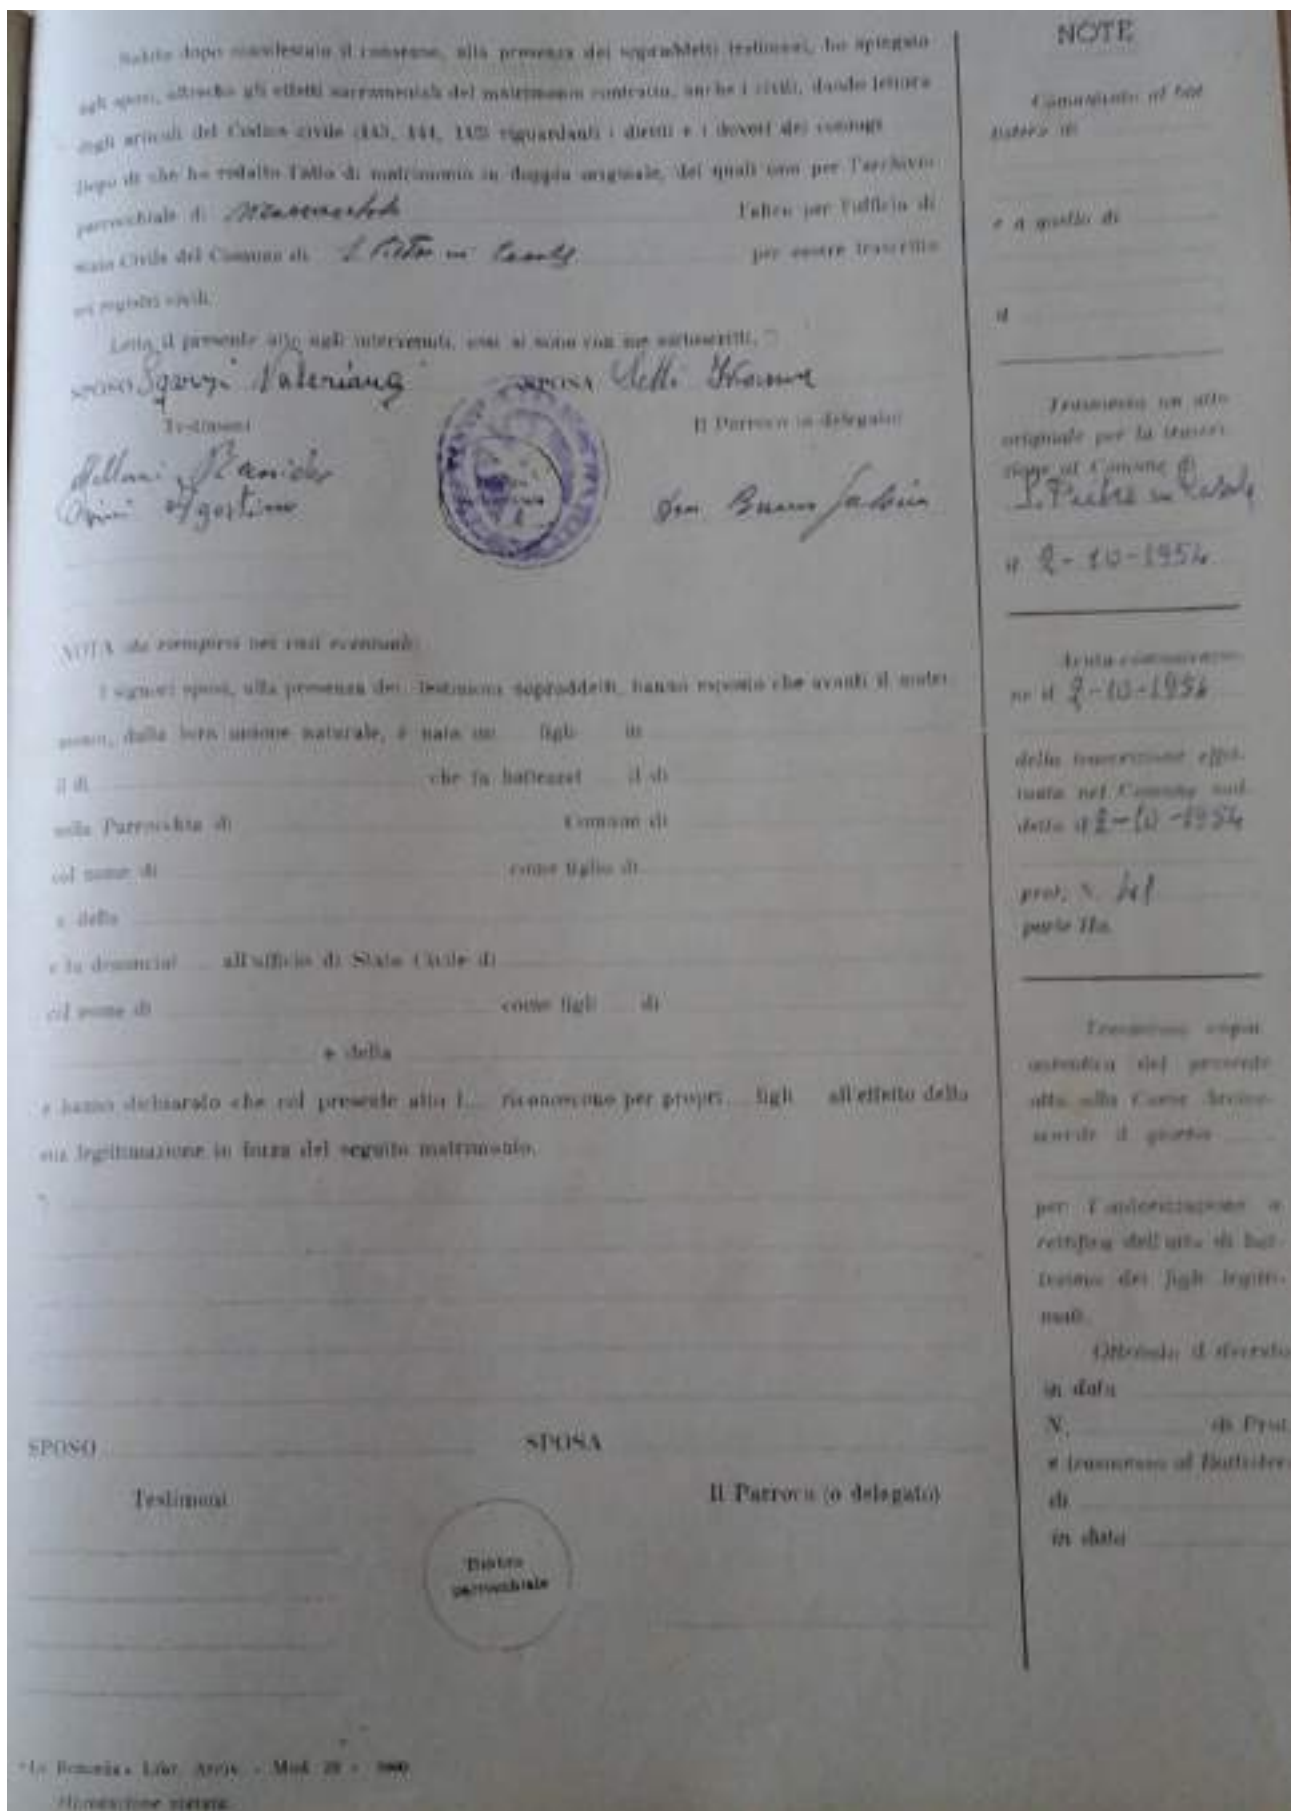 Subito dopo manifestato il consenso, alla presenza dei sopraddetti testimoni, ho spiegato
agli sposi, oltreché gli effetti sacramentali del matrimonio contratto, anche i civili, dando lettura
degli articoli del Codice civile (143, 144, 145) riguardanti i diritti e i doveri dei coniugi
Dopo di che ho redatto l'atto di matrimonio in doppio originale, dei quali uno per l'archivio
parrocchiale di l'altro per l'ufficio di
stato Civile del Comune di S. Pietro in Casale per essere trascritto
nei registri civili.
Letto il presente atto agli intervenuti, essi si sono con me sottoscritti.
SPOSO Sgarzi Valeriano SPOSA Ivonne
Testimoni Il Parroco (o delegato)
Agostino don Bruno
NOTA da riempirsi nei casi eventuali:
I signori sposi, alla presenza dei Testimoni sopraddetti, hanno esposto che avanti il matri-
monio, dalla loro unione naturale, è nato un figli in
il dì che fu battezzat il dì
nella Parrocchia di Comune di
col nome di come figlio di
e della
e fu denunciat all'ufficio di Stato Civile di
col nome di come figli di
e della
e hanno dichiarato che col presente atto l... riconoscono per propri... figli all'effetto della
sua legittimazione in forza del seguito matrimonio.
SPOSO SPOSA
Testimoni Il Parroco (o delegato)
Timbro
parrocchiale
Mod. 20
Riproduzione vietata
NOTE
Comunicato al bat-
tistero di
e a quello di
il
Trasmesso un atto
originale per la trascri-
zione al Comune di
S. Pietro in Casale
il 2-10-1954
Avuta comunicazio-
ne il 2-10-1954
della trascrizione effet-
tuata nel Comune sud-
detto il 2-10-1954
prot. N.
parte IIa.
Trasmessa copia
autentica del presente
atto alla Curia Arcive-
scovile il giorno
per l'autorizzazione a
rettifica dell'atto di bat-
tesimo dei figli legitti-
mati.
Ottenuto il decreto
in data
N. di Prot.
e trasmesso al Battistero
di
in data